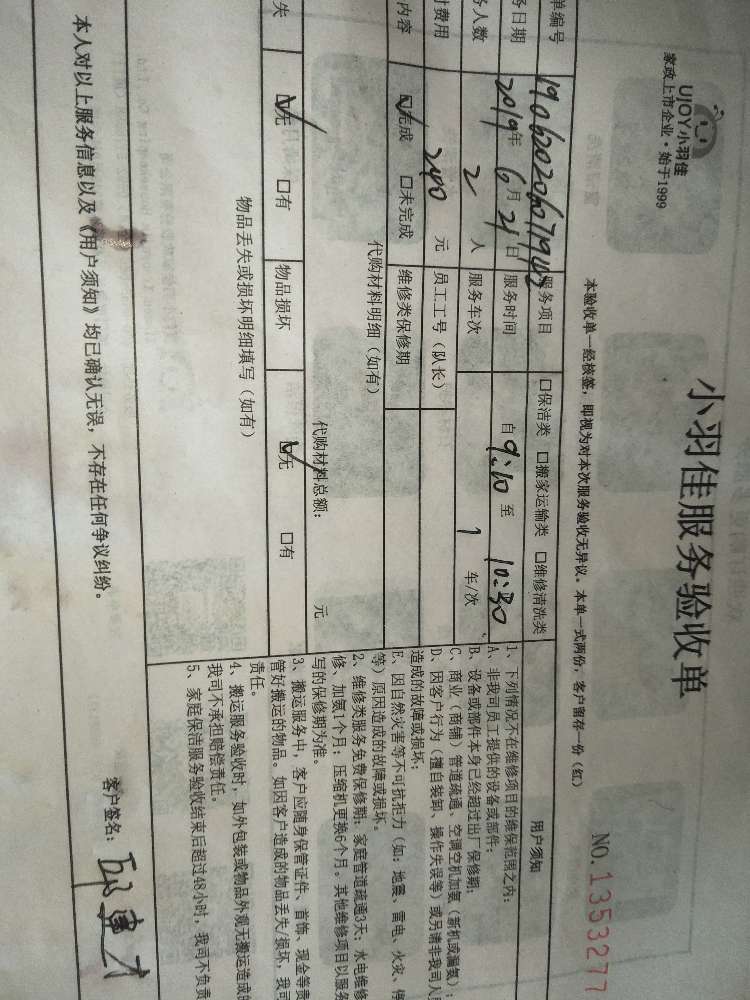 UJOY小羽佳
家政上市企业·始于1999
小羽佳服务验收单
NO.1353277
本验收单一经核签，即视为对本次服务验收无异议。本单一式两份，客户留存一份（红）
单编号
服务项目 口保洁类 口搬家运输类 口维修清洗类
务日期 2019年6月21日 服务时间 自9:10至10:30
务人数 2人 服务车次 1 车/次
付费用 240元 员工工号（队长）
内容 ☑完成 口未完成 维修类保修期
代购材料明细（如有）
代购材料总额： 元
失 ☑无 口有 物品损坏 ☑无 口有
物品丢失或损坏明细填写（如有）
用户须知
1、下列情况不在维修项目的维保范围之内：
A、非我司员工提供的设备或部件；
B、设备或部件本身已经超过出厂保修期；
C、商业（商铺）管道疏通、空调空机加氨（新机或漏氨）；
D、因客户行为（擅自装卸、操作失误等）或另请非我司人员
造成的故障或损坏；
E、因自然灾害等不可抗拒力（如：地震、雷电、火灾、停
等）原因造成的故障或损坏。
2、维修类服务免费保修期：家庭管道疏通3天；水电维修
修、加氨1个月；压缩机更换6个月。其他维修项目以服务
写的保修期为准。
3、搬运服务中，客户应随身保管证件、首饰、现金等贵
管好搬运的物品。如因客户造成的物品丢失/损坏，我司
责任。
4、搬运服务验收时，如外包装或物品外观无搬运造成的
我司不承担赔偿责任。
5、家庭保洁服务验收结束后超过48小时，我司不负责
本人对以上服务信息以及《用户须知》均已确认无误，不存在任何争议纠纷。
客户签名：